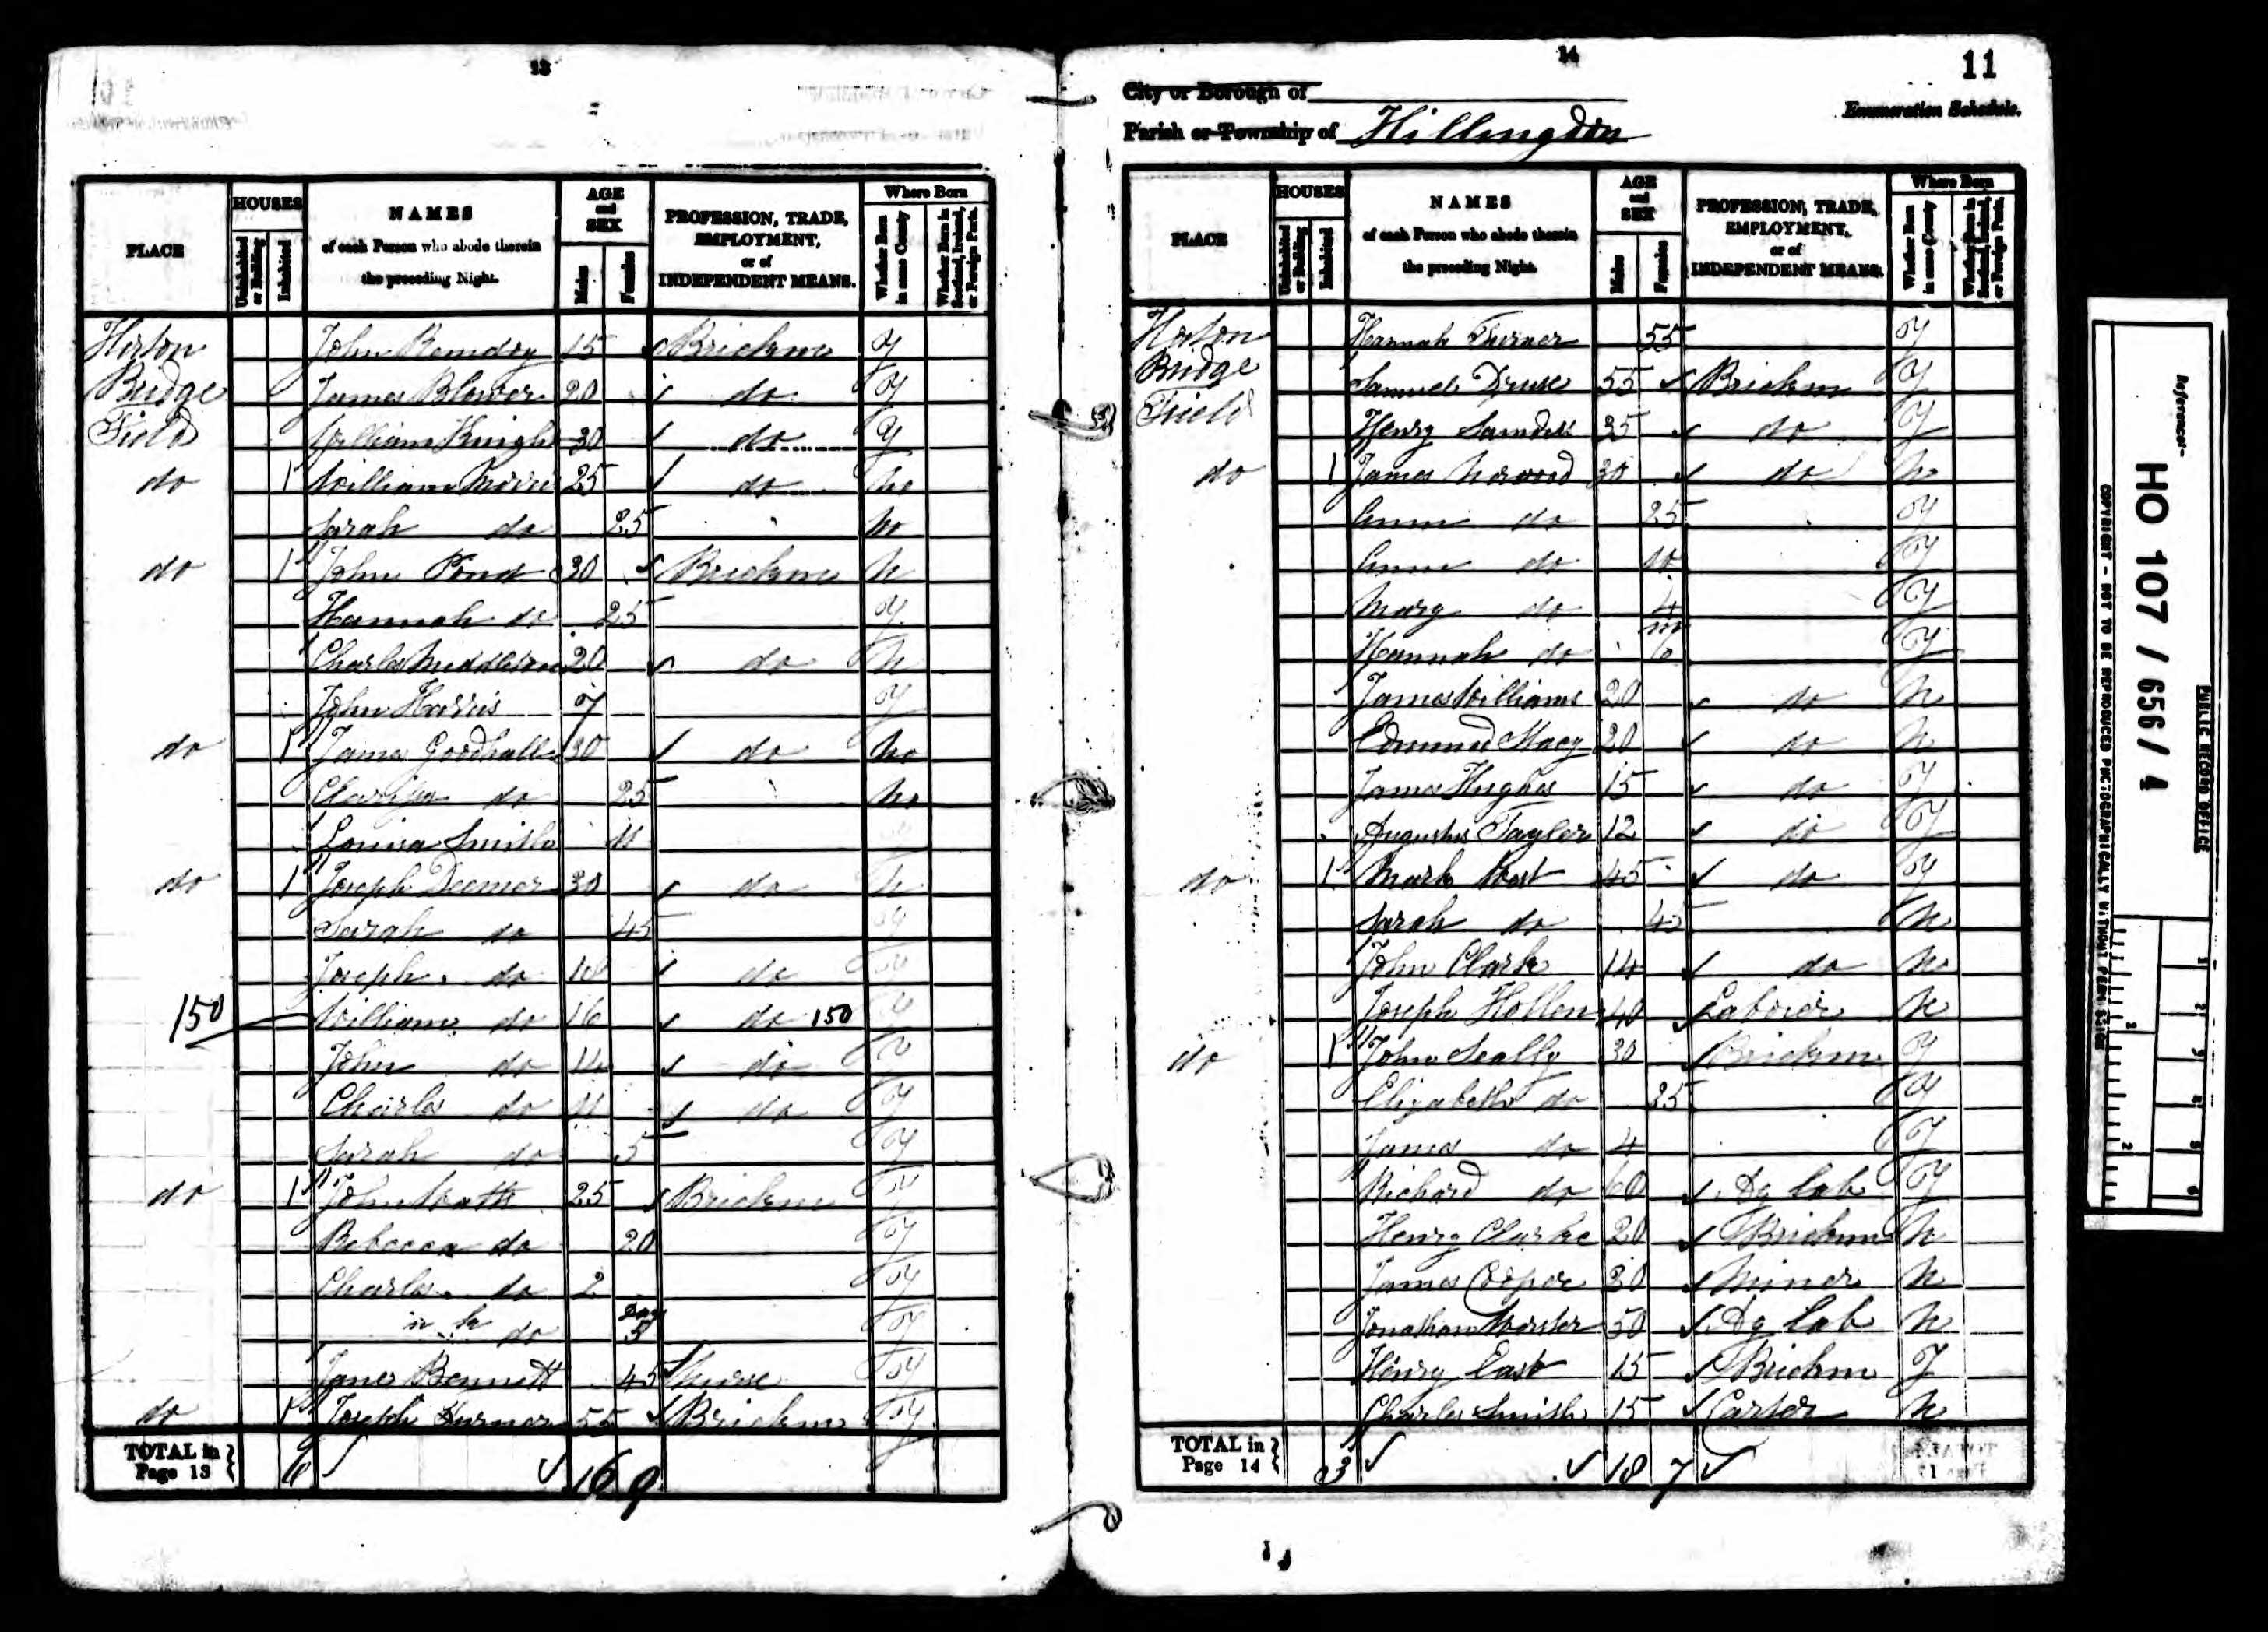 13
PLACE
HOUSES
Uninhabited or Building
Inhabited
NAMES of each Person who abode therein the preceding Night.
AGE and SEX
Males
Females
PROFESSION, TRADE, EMPLOYMENT, or of INDEPENDENT MEANS.
Where Born
Whether Born in same County
Whether Born in Scotland, Ireland, or Foreign Parts.
Horton John 15 Brickm Y
Bridge James Blower 20 do Y
Field William Knight 30 do Y
do 1 William 25 do No
Sarah do 25 No
do 1 John Pond 30 Brickm N
Hannah do 25 Y
Charles Middleton 20 do N
John Harris 7 Y
do 1 James Goodhall 30 do No
do 25 No
Louisa Smith 11
do 1 Joseph Deemer 30 do N
Sarah do 45 Y
Joseph do 18 do Y
150 William do 16 do 150 Y
John do 14 do Y
Charles do 11 do Y
Sarah do 5 Y
do 1 John 25 Brickm Y
Rebecca do 20 Y
Charles do 2 Y
do Day Y
Jane Bennett 45 Nurse Y
do 1 Joseph Turner 55 Brickm Y
TOTAL in Page 13 6 16 9
14
11
City or Borough of
Enumeration Schedule.
Parish or Township of Hillingdon
PLACE
HOUSES
Uninhabited or Building
Inhabited
NAMES of each Person who abode therein the preceding Night.
AGE and SEX
Males
Females
PROFESSION, TRADE, EMPLOYMENT, or of INDEPENDENT MEANS.
Where Born
Whether Born in same County
Whether Born in Scotland, Ireland, or Foreign Parts.
Horton Hannah Turner 55 Y
Bridge Samuel Druce 55 Brickm Y
Field Henry 25 do Y
do 1 James Norwood 30 do N
Ann do 25 Y
Ann do 10 Y
Mary do 4 Y
Hannah do m 10 Y
James Williams 20 do N
Edmund Stacy 20 do N
James Hughes 15 do Y
Augustus Tayler 12 do Y
do 1 Mark West 45 do Y
Sarah do 45 N
John Clark 14 do N
Joseph 40 Laborer N
do 1 John Seally 30 Brickm Y
Elizabeth do 25 Y
James do 4 Y
Richard do 60 Ag Lab Y
Henry Clarke 20 Brickm N
James Cooper 20 Miner N
Jonathan 50 Ag Lab N
Henry East 15 Brickm Y
Charles Smith 15 Carter N
TOTAL in Page 14 3 18 7
Reference:-
HO 107 / 656 / 4
PUBLIC RECORD OFFICE
COPYRIGHT - NOT TO BE REPRODUCED PHOTOGRAPHICALLY WITHOUT PERMISSION
1 2 3 4 5 6
1 2